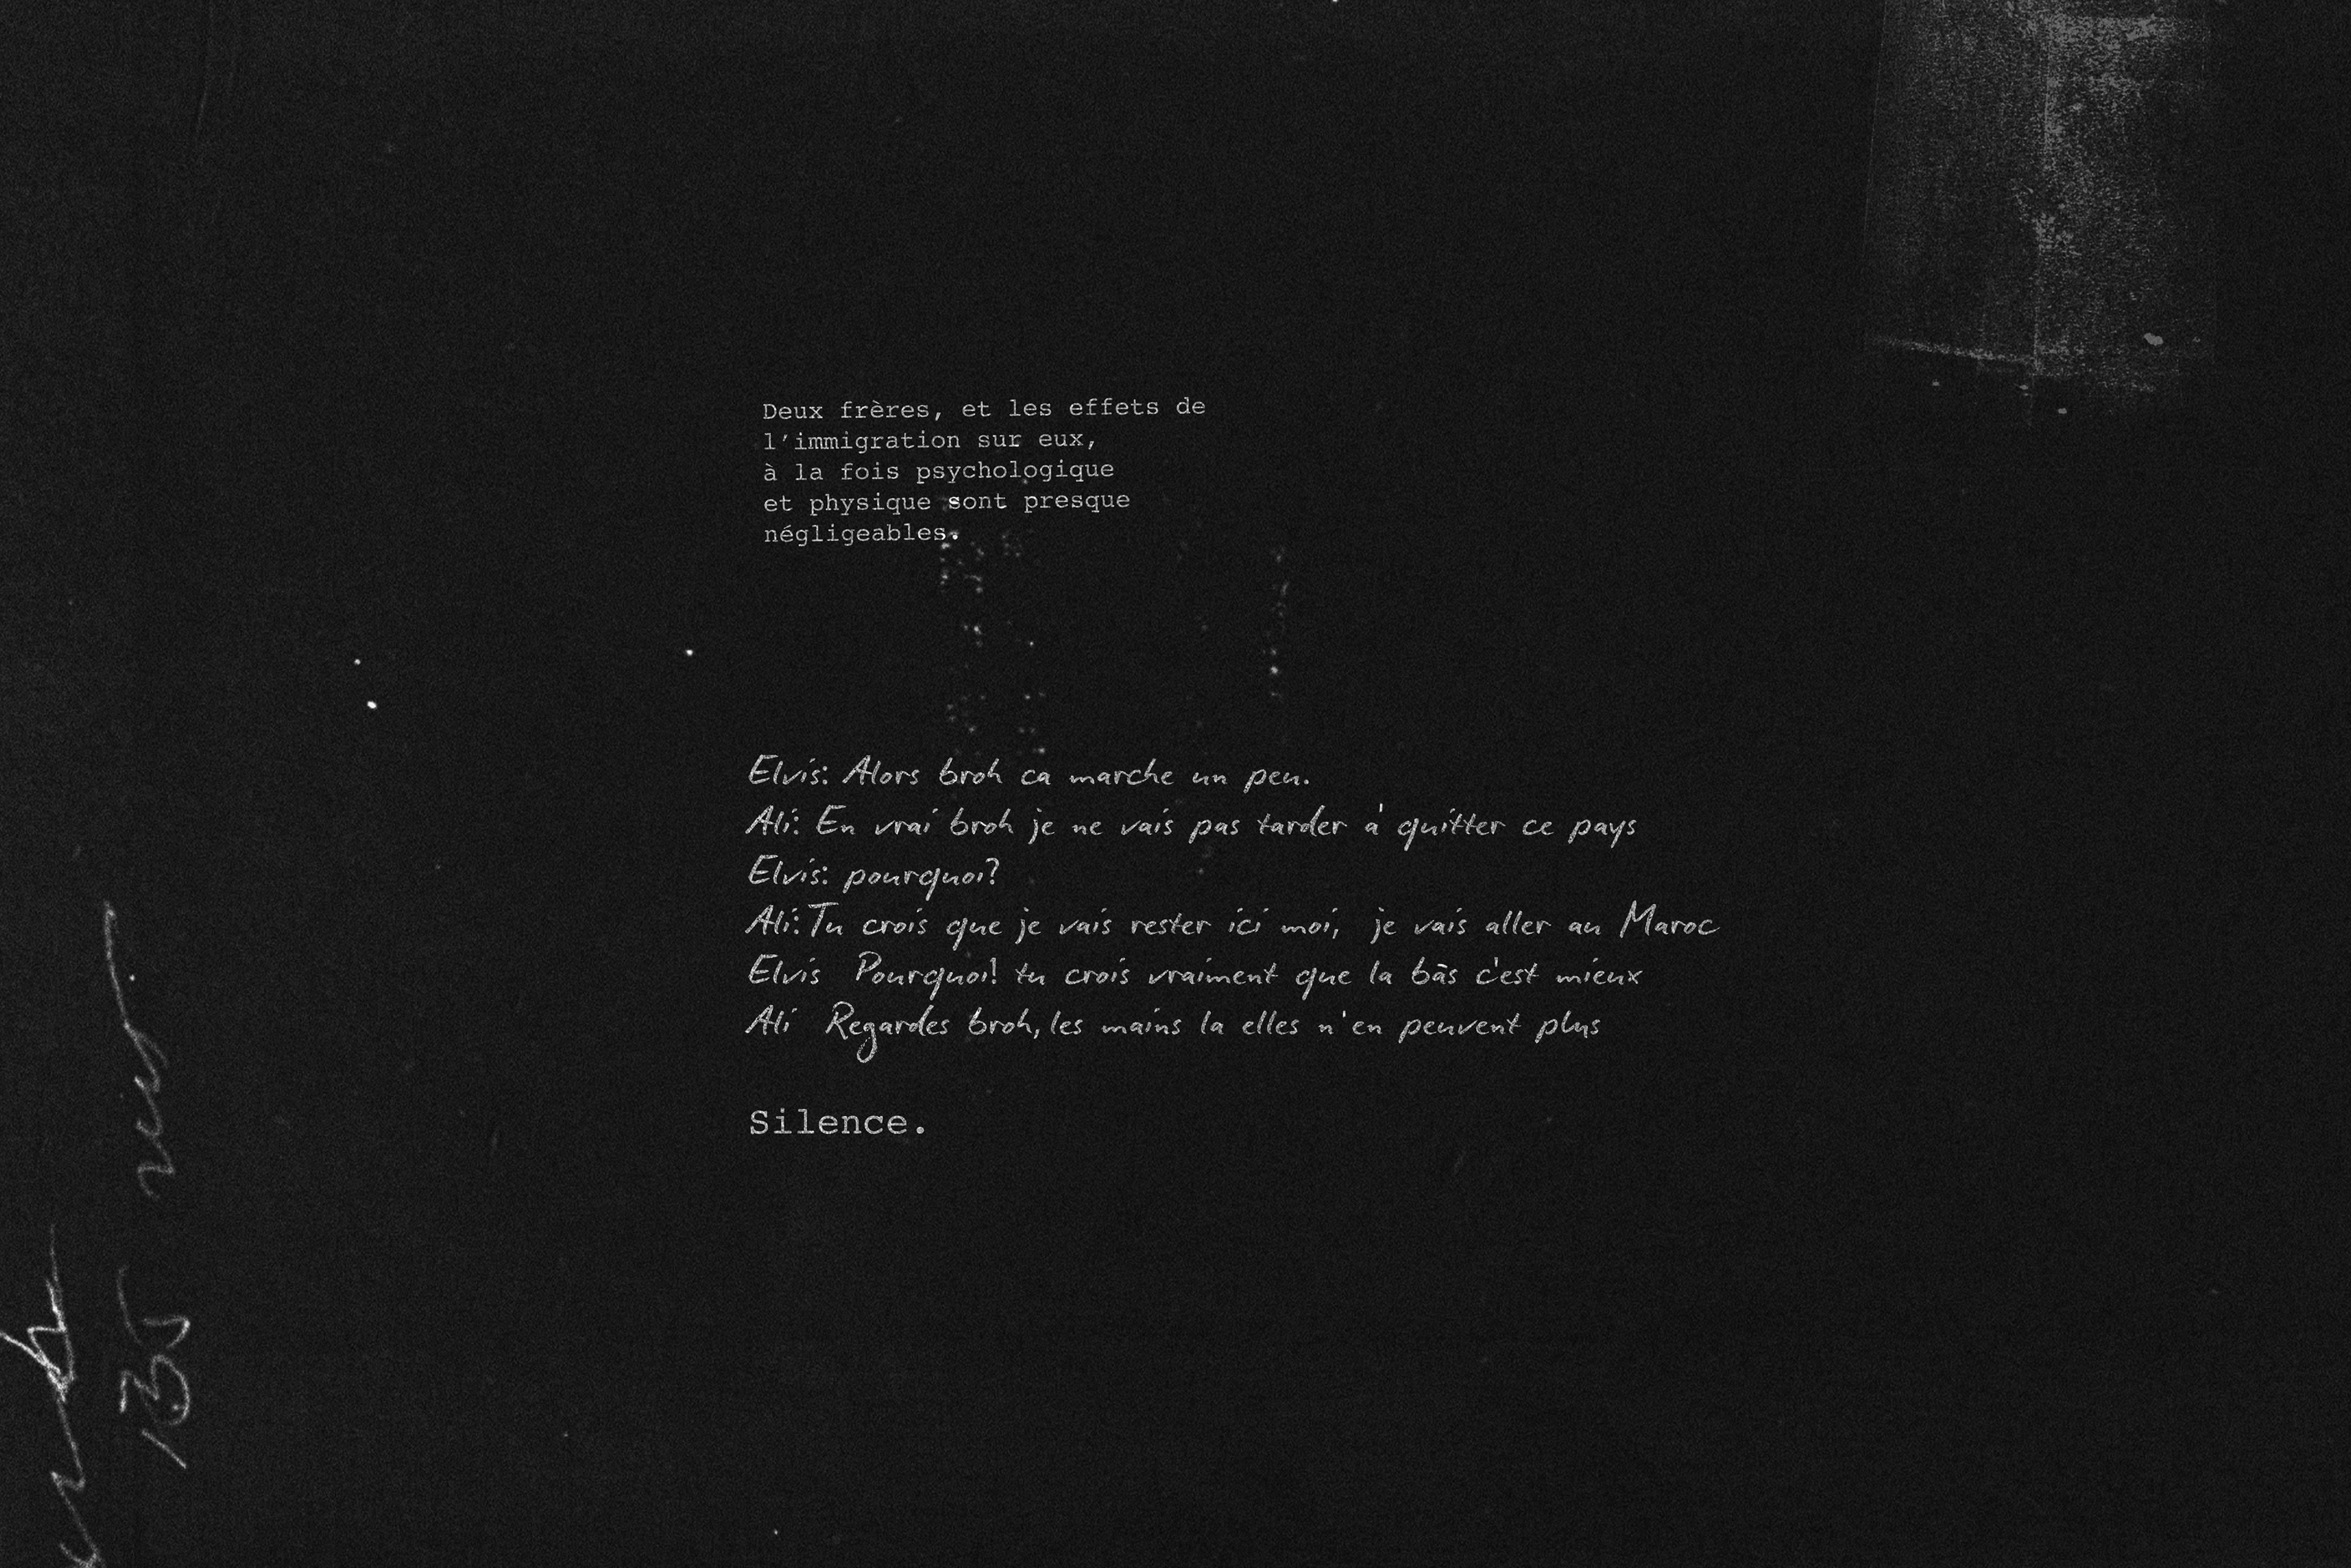 Deux frères, et les effets de
l'immigration sur eux,
à la fois psychologique
et physique sont presque
négligeables.
Elvis: Alors broh ca marche un peu.
Ali: En vrai broh je ne vais pas tarder à quitter ce pays
Elvis: pourquoi?
Ali: Tu crois que je vais rester ici moi, je vais aller au Maroc
Elvis Pourquoi! tu crois vraiment que la bàs c'est mieux
Ali Regardes broh, les mains la elles n'en peuvent plus
Silence.